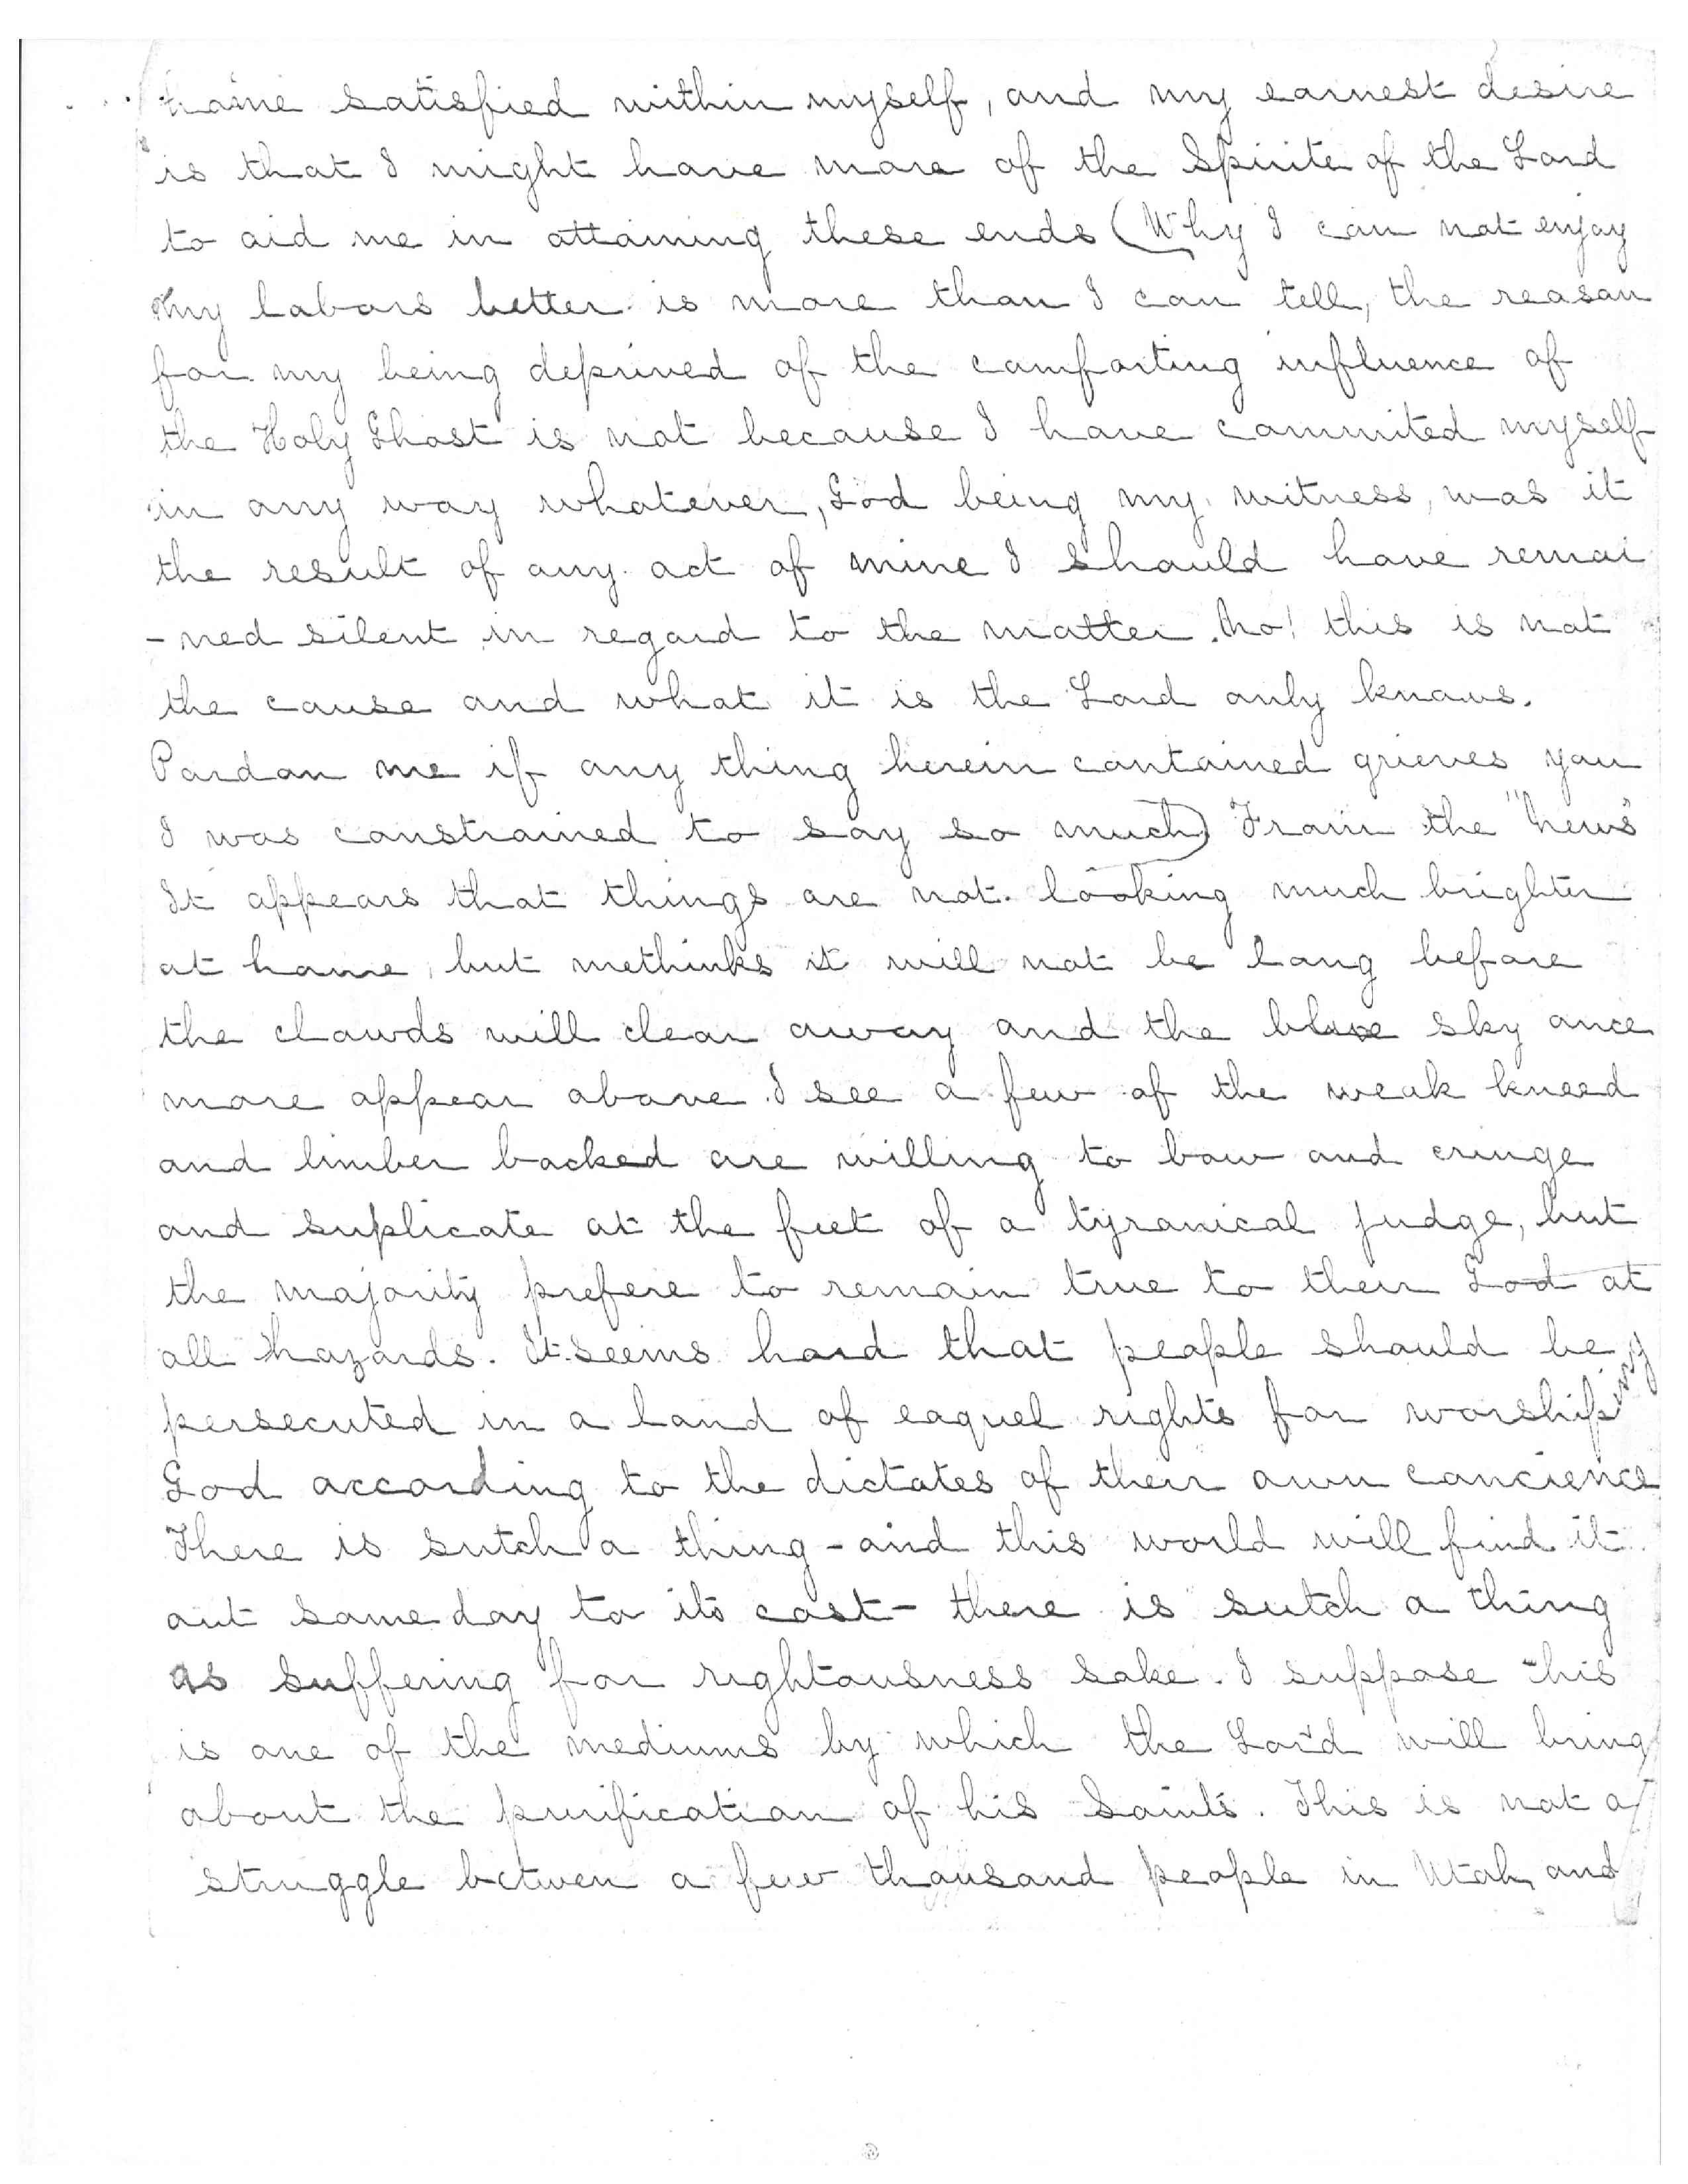 home satisfied within myself, and my earnest desire
is that I might have more of the Spirite of the Lord
to aid me in attaining these ends (Why I can not enjoy
my labors better is more than I can tell, the reason
for my being deprived of the comforting influence of
the Holy Ghost is not because I have commited myself
in any way whatever, God being my witness, was it
the result of any act of mine I should have remai
-ned silent in regard to the matter. No! this is not
the cause and what it is the Lord only knows.
Pardon me if any thing herein contained grieves you
I was constrained to say so much) From the "News"
It appears that things are not looking much brighter
at home, but methinks it will not be long before
the clowds will clear away and the blue sky once
more appear above. I see a few of the weak kneed
and limber backed are willing to bow and cringe
and suplicate at the feet of a tyranical judge, but
the majority prefere to remain true to their God at
all hazards. It seems hard that people should be
persecuted in a land of eaquel rights for worshiping
God according to the dictates of their own concience
There is sutch a thing - and this world will find it
out some day to its cost - there is sutch a thing
as suffering for rightousness sake. I suppose this
is one of the mediums by which the Lord will bring
about the purification of his Saints. This is not a
struggle betwen a few thousand people in Utah, and